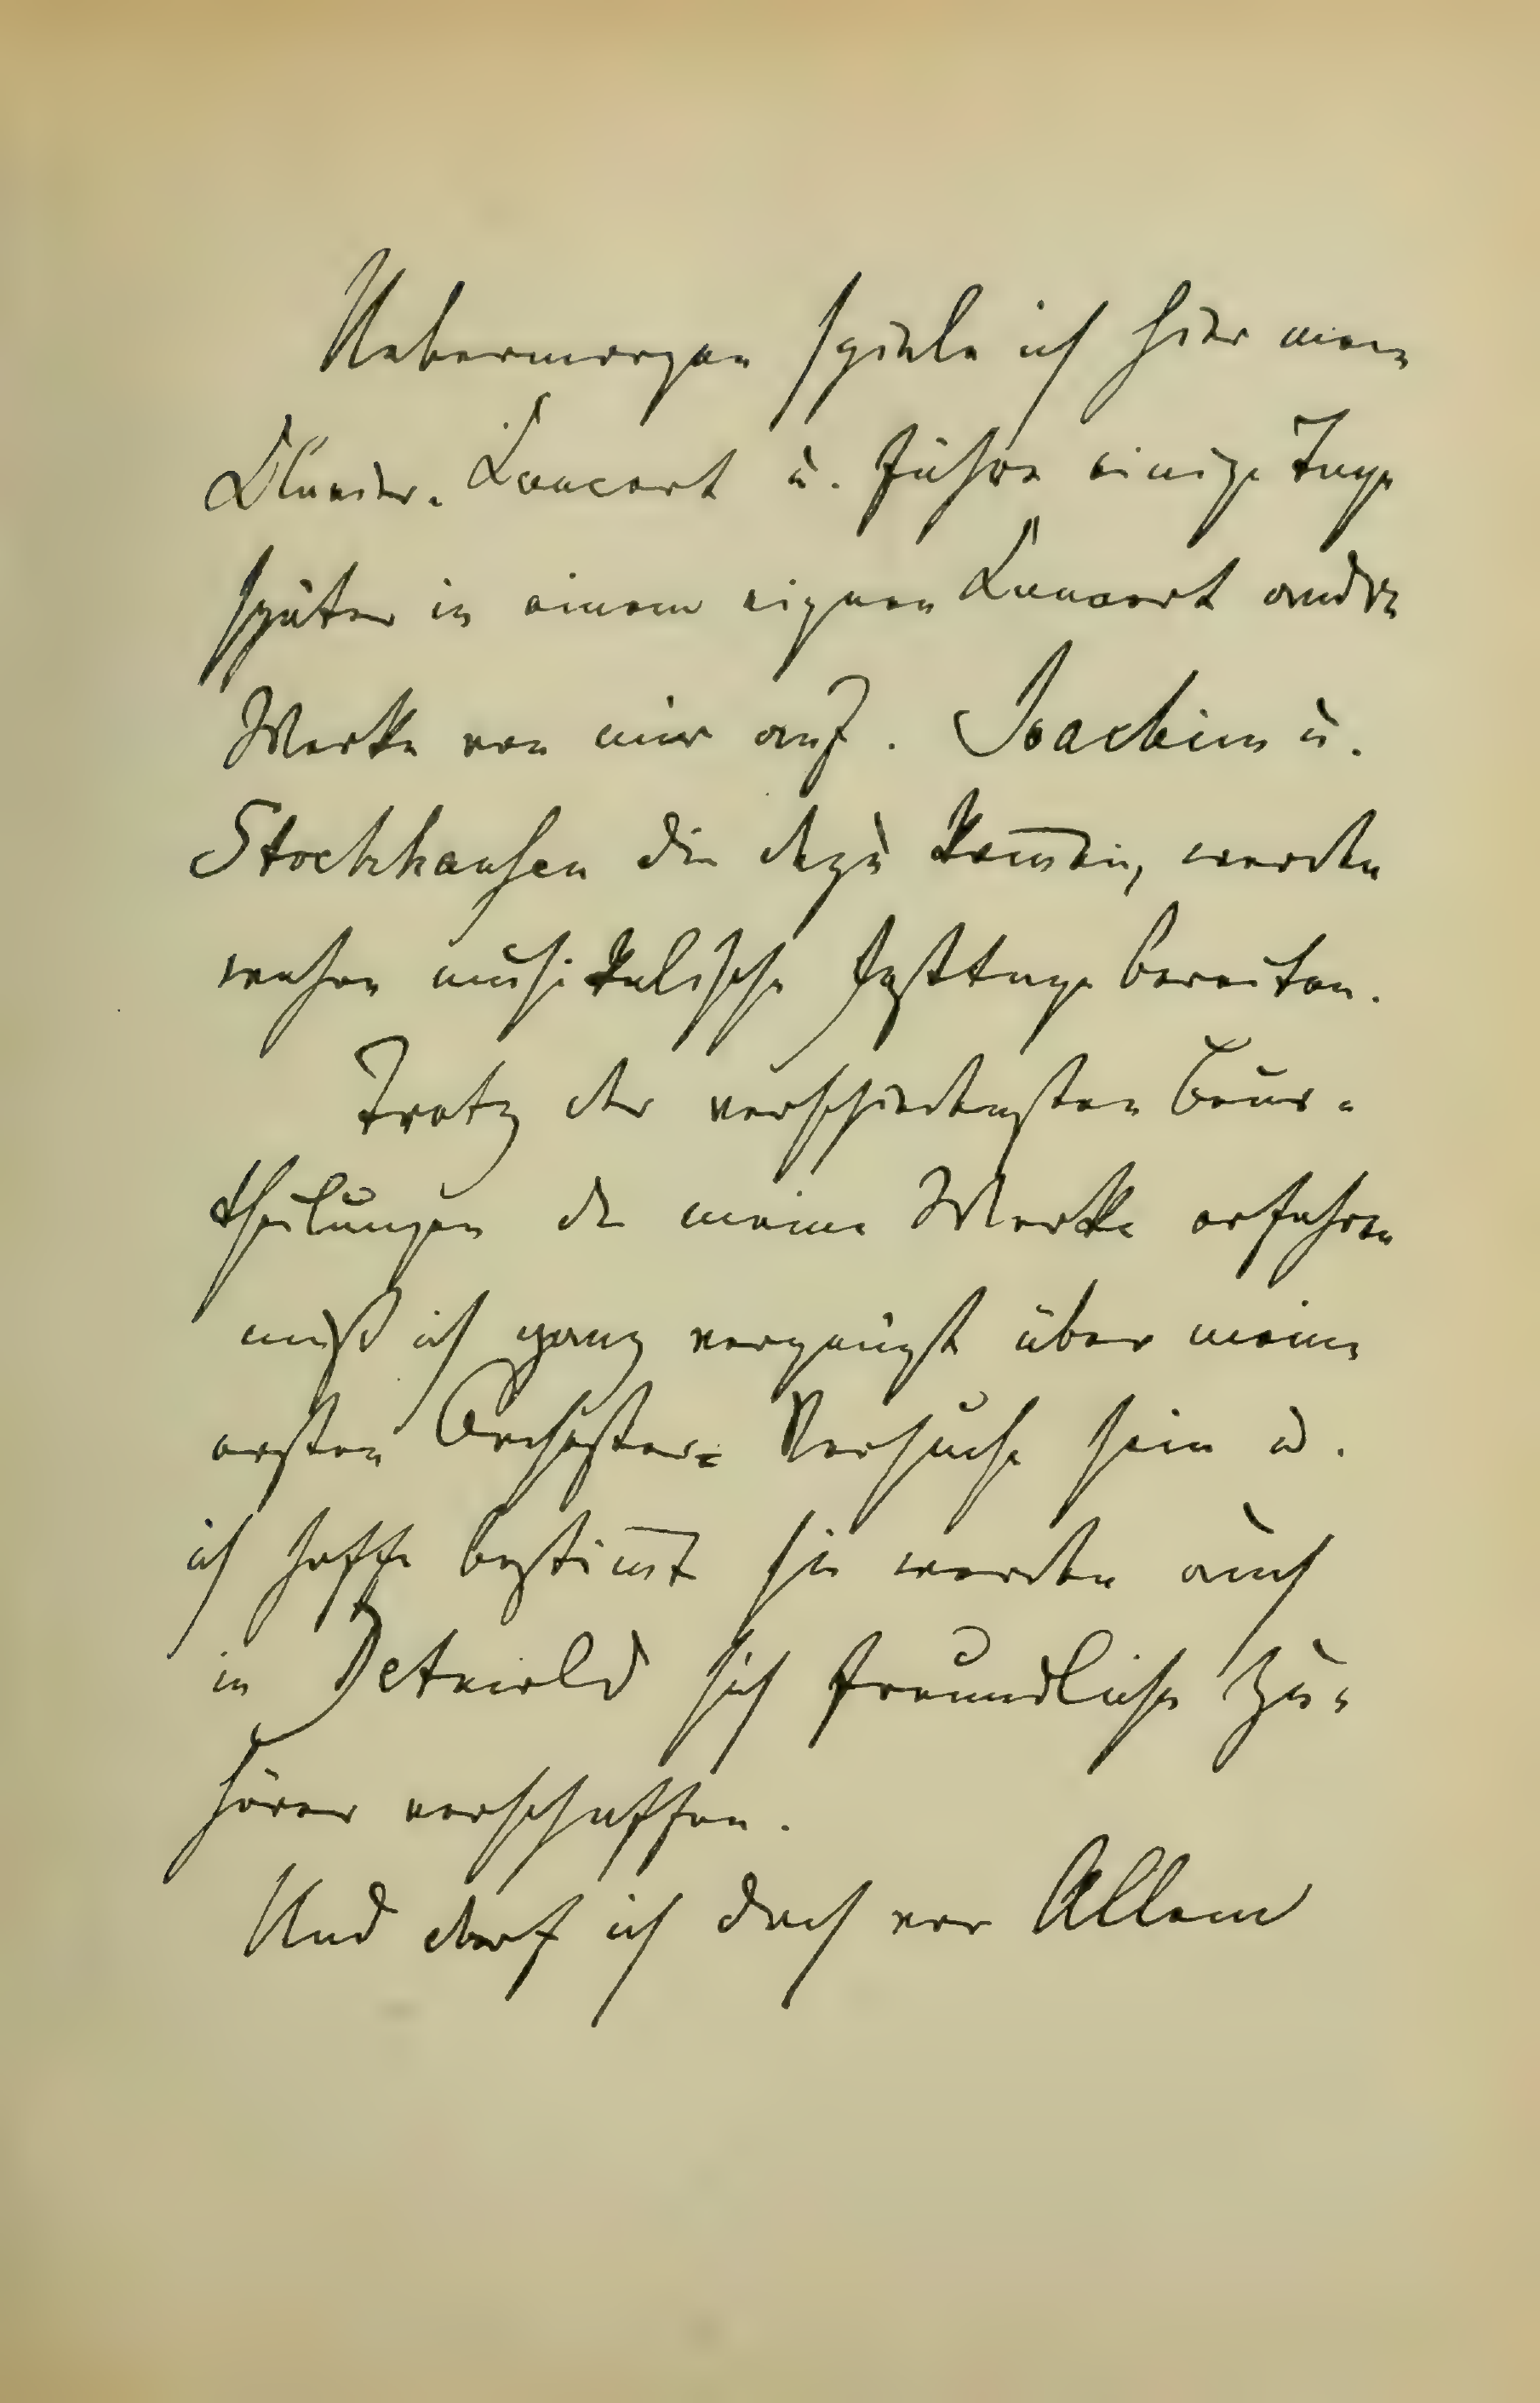 Uebermorgen spiele ich hier mein
Clavier-Concert u. führe einige Tage
später in einem eignen Concert andre
Werke von mir auf. Joachim u.
Stockhausen die dazu kom̅en, werden
wahre musikalische Festtage bereiten.
Trotz der verschiedensten Beur-
theilungen die meine Werke erfahren
muß ich ganz vergnügt über meine
ersten Orchester= Versuche sein u.
ich hoffe bestim̅t sie werden auch
in Detmold sich freundliche Zu-
hörer verschaffen.
Und darf ich doch vor Allem